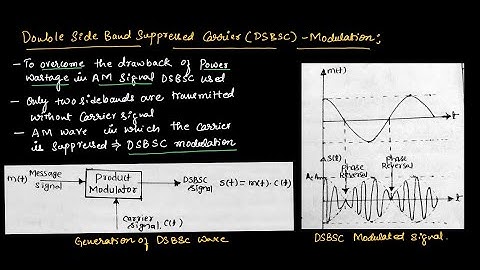 Double Side Band Suppressed Carrier (DSBSC) - Modulation:
- To overcome the drawback of Power
Wastage in AM Signal DSBSC used
- Only two sidebands are transmitted
without Carrier signal
- AM wave in which the carrier
is suppressed ⇒ DSBSC modulation
m(t) Message
Signal
Product
Modulator
DSBSC
Signal
S(t) = m(t) · C(t)
Carrier
Signal, C(t)
Generation of DSBSC wave
m(t)
t
S(t)
Phase
Reversal
Phase
Reversal
t
DSBSC Modulated Signal.